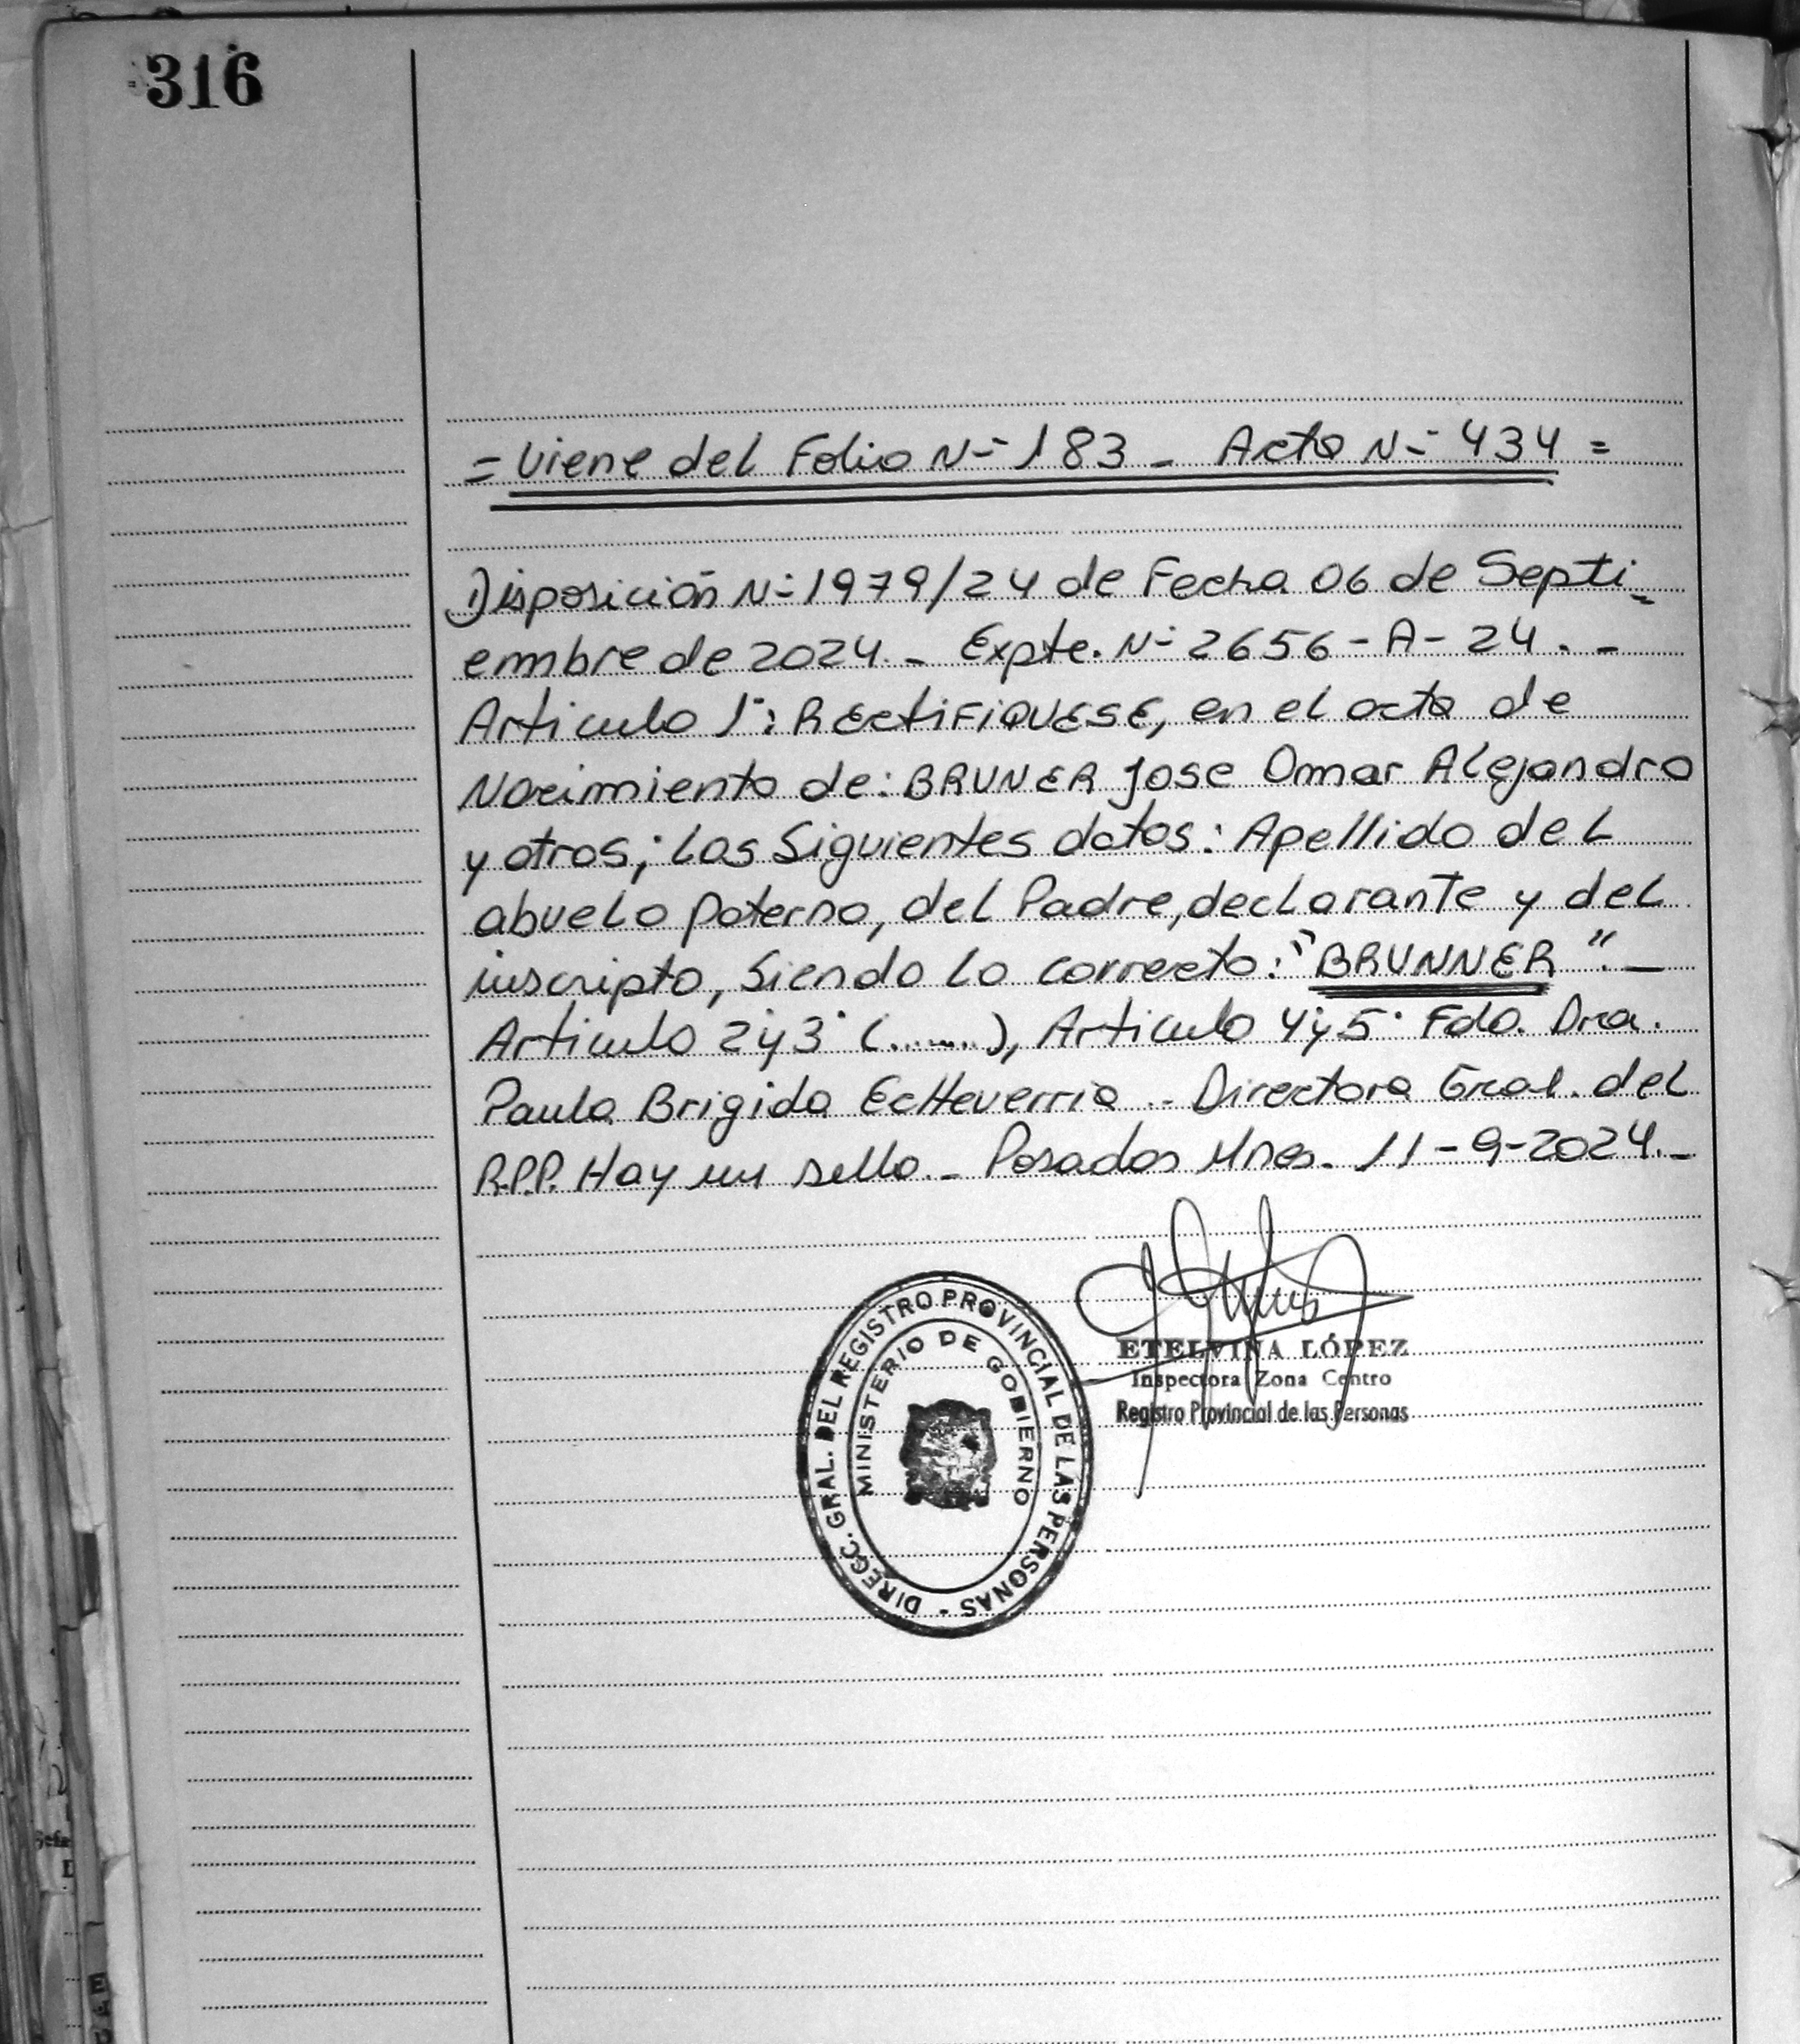 316
= Viene del Folio Nº 183 - Acta Nº 434 =
Disposición Nº 1979/24 de Fecha 06 de Septi-
embre de 2024.- Expte. Nº 2656-A-24.-
Articulo 1º: RECTIFIQUESE, en el acta de
Nacimiento de: BRUNER Jose Omar Alejandro
y otros; los Siguientes datos: Apellido del
abuelo paterno, del Padre, declarante y del
inscripto, Siendo lo correcto: "BRUNNER".-
Articulo 2º y 3º (........), Articulo 4º y 5º Fdo. Dra.
Paula Brigida Echeverria - Directora Gral. del
R.P.P. Hay un sello.- Posadas Mnes. 11-9-2024.-
ETELVINA LÓPEZ
Inspectora Zona Centro
Registro Provincial de las Personas
DIRECC. GRAL. DEL REGISTRO PROVINCIAL DE LAS PERSONAS -
MINISTERIO DE GOBIERNO